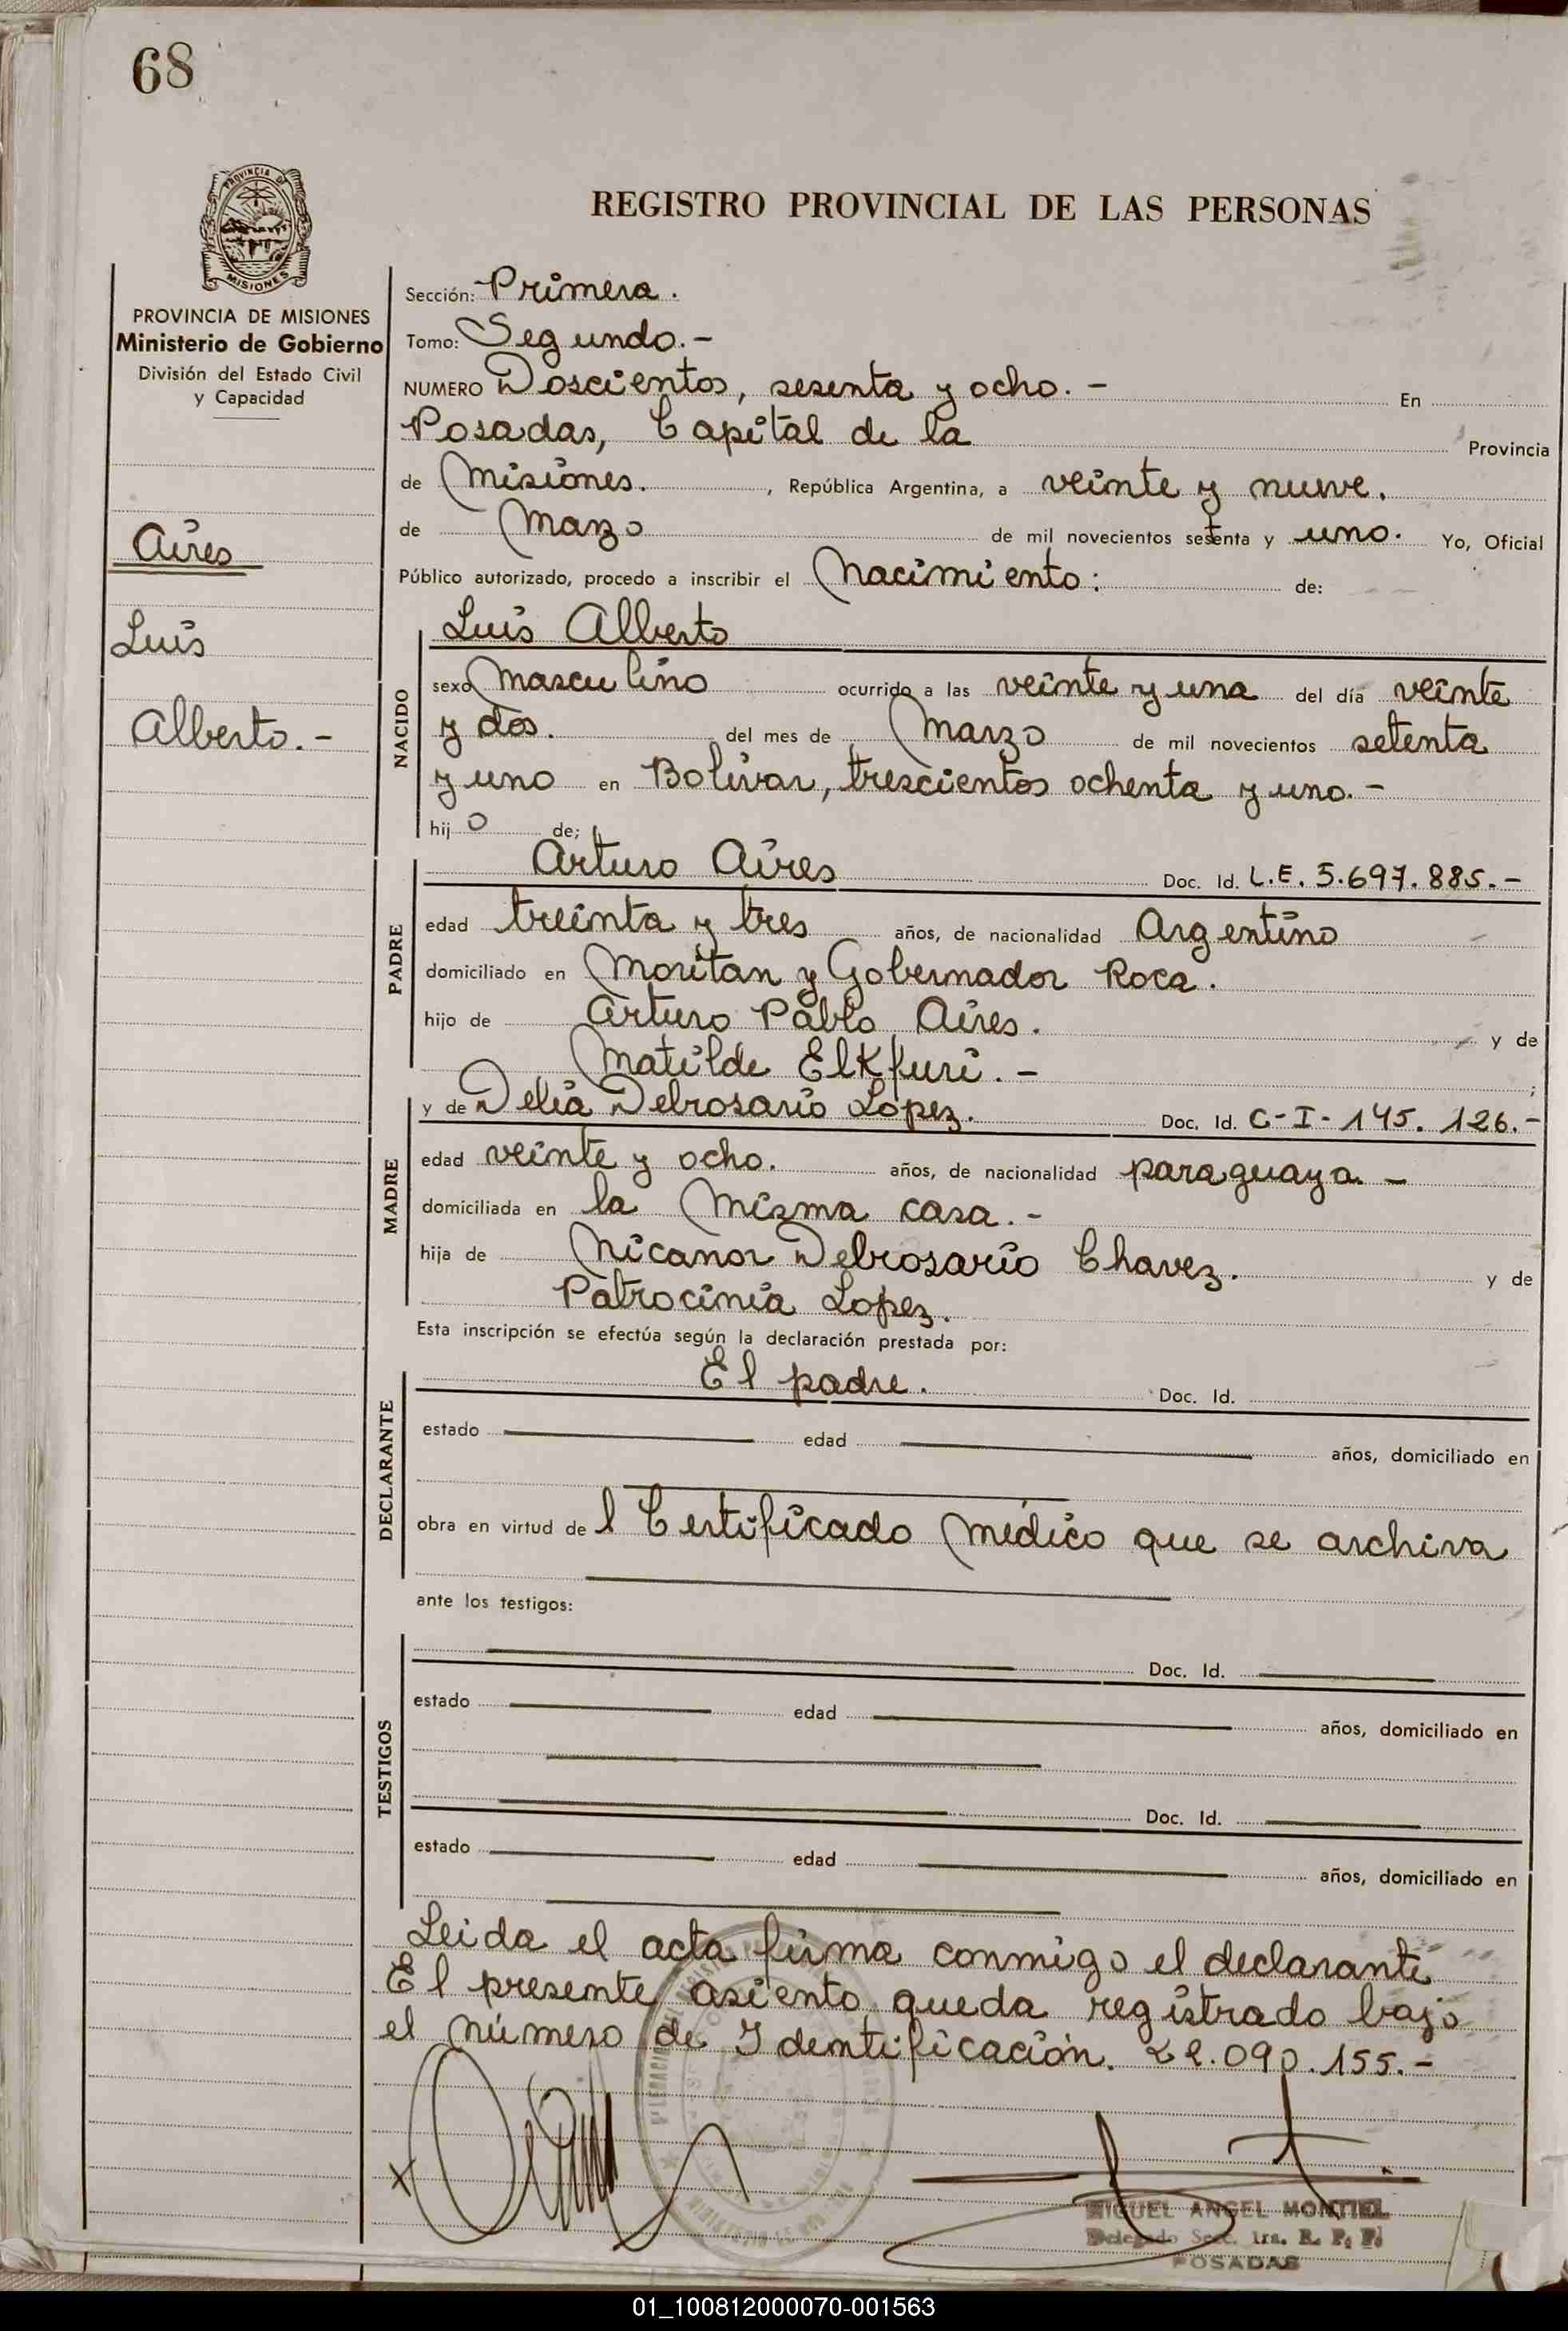 68
PROVINCIA D
MISIONES
REGISTRO PROVINCIAL DE LAS PERSONAS
PROVINCIA DE MISIONES
Ministerio de Gobierno
División del Estado Civil
y Capacidad
Aires
Luis
Alberto.-
Sección: Primera.
Tomo: Segundo.-
NUMERO Doscientos, sesenta y ocho.- En
Posadas, Capital de la Provincia
de Misiones. , República Argentina, a veinte y nueve.
de Marzo de mil novecientos setenta y uno. Yo, Oficial
Público autorizado, procedo a inscribir el Nacimiento: de:
NACIDO
Luis Alberto
sexo Masculino ocurrido a las veinte y una del día veinte
y dos. del mes de Marzo de mil novecientos setenta
y uno en Bolivar, trescientos ochenta y uno.-
hij o de;
PADRE
Arturo Aires Doc. Id. L.E. 5.697.885.-
edad treinta y tres años, de nacionalidad Argentino
domiciliado en Moritan y Gobernador Roca.
hijo de Arturo Pablo Aires. y de
Matilde Elkfuri.- ;
MADRE
y de Delia Delrosario Lopez. Doc. Id. C-I-145.126.-
edad veinte y ocho. años, de nacionalidad paraguaya.-
domiciliada en la misma casa.-
hija de Nicanor Delrosario Chavez. y de
Patrocinia Lopez.
Esta inscripción se efectúa según la declaración prestada por:
DECLARANTE
El padre. Doc. Id.
estado edad años, domiciliado en
obra en virtud de l Certificado médico que se archiva
ante los testigos:
TESTIGOS
Doc. Id.
estado edad años, domiciliado en
Doc. Id.
estado edad años, domiciliado en
Leida el acta firma conmigo el declarante
El presente asiento queda registrado bajo
el número de Identificación. 22.090.155.-
MIGUEL ANGEL MONTIEL
Delegado Secc. 1ra. R. P. P.
POSADAS
01_100812000070-001563